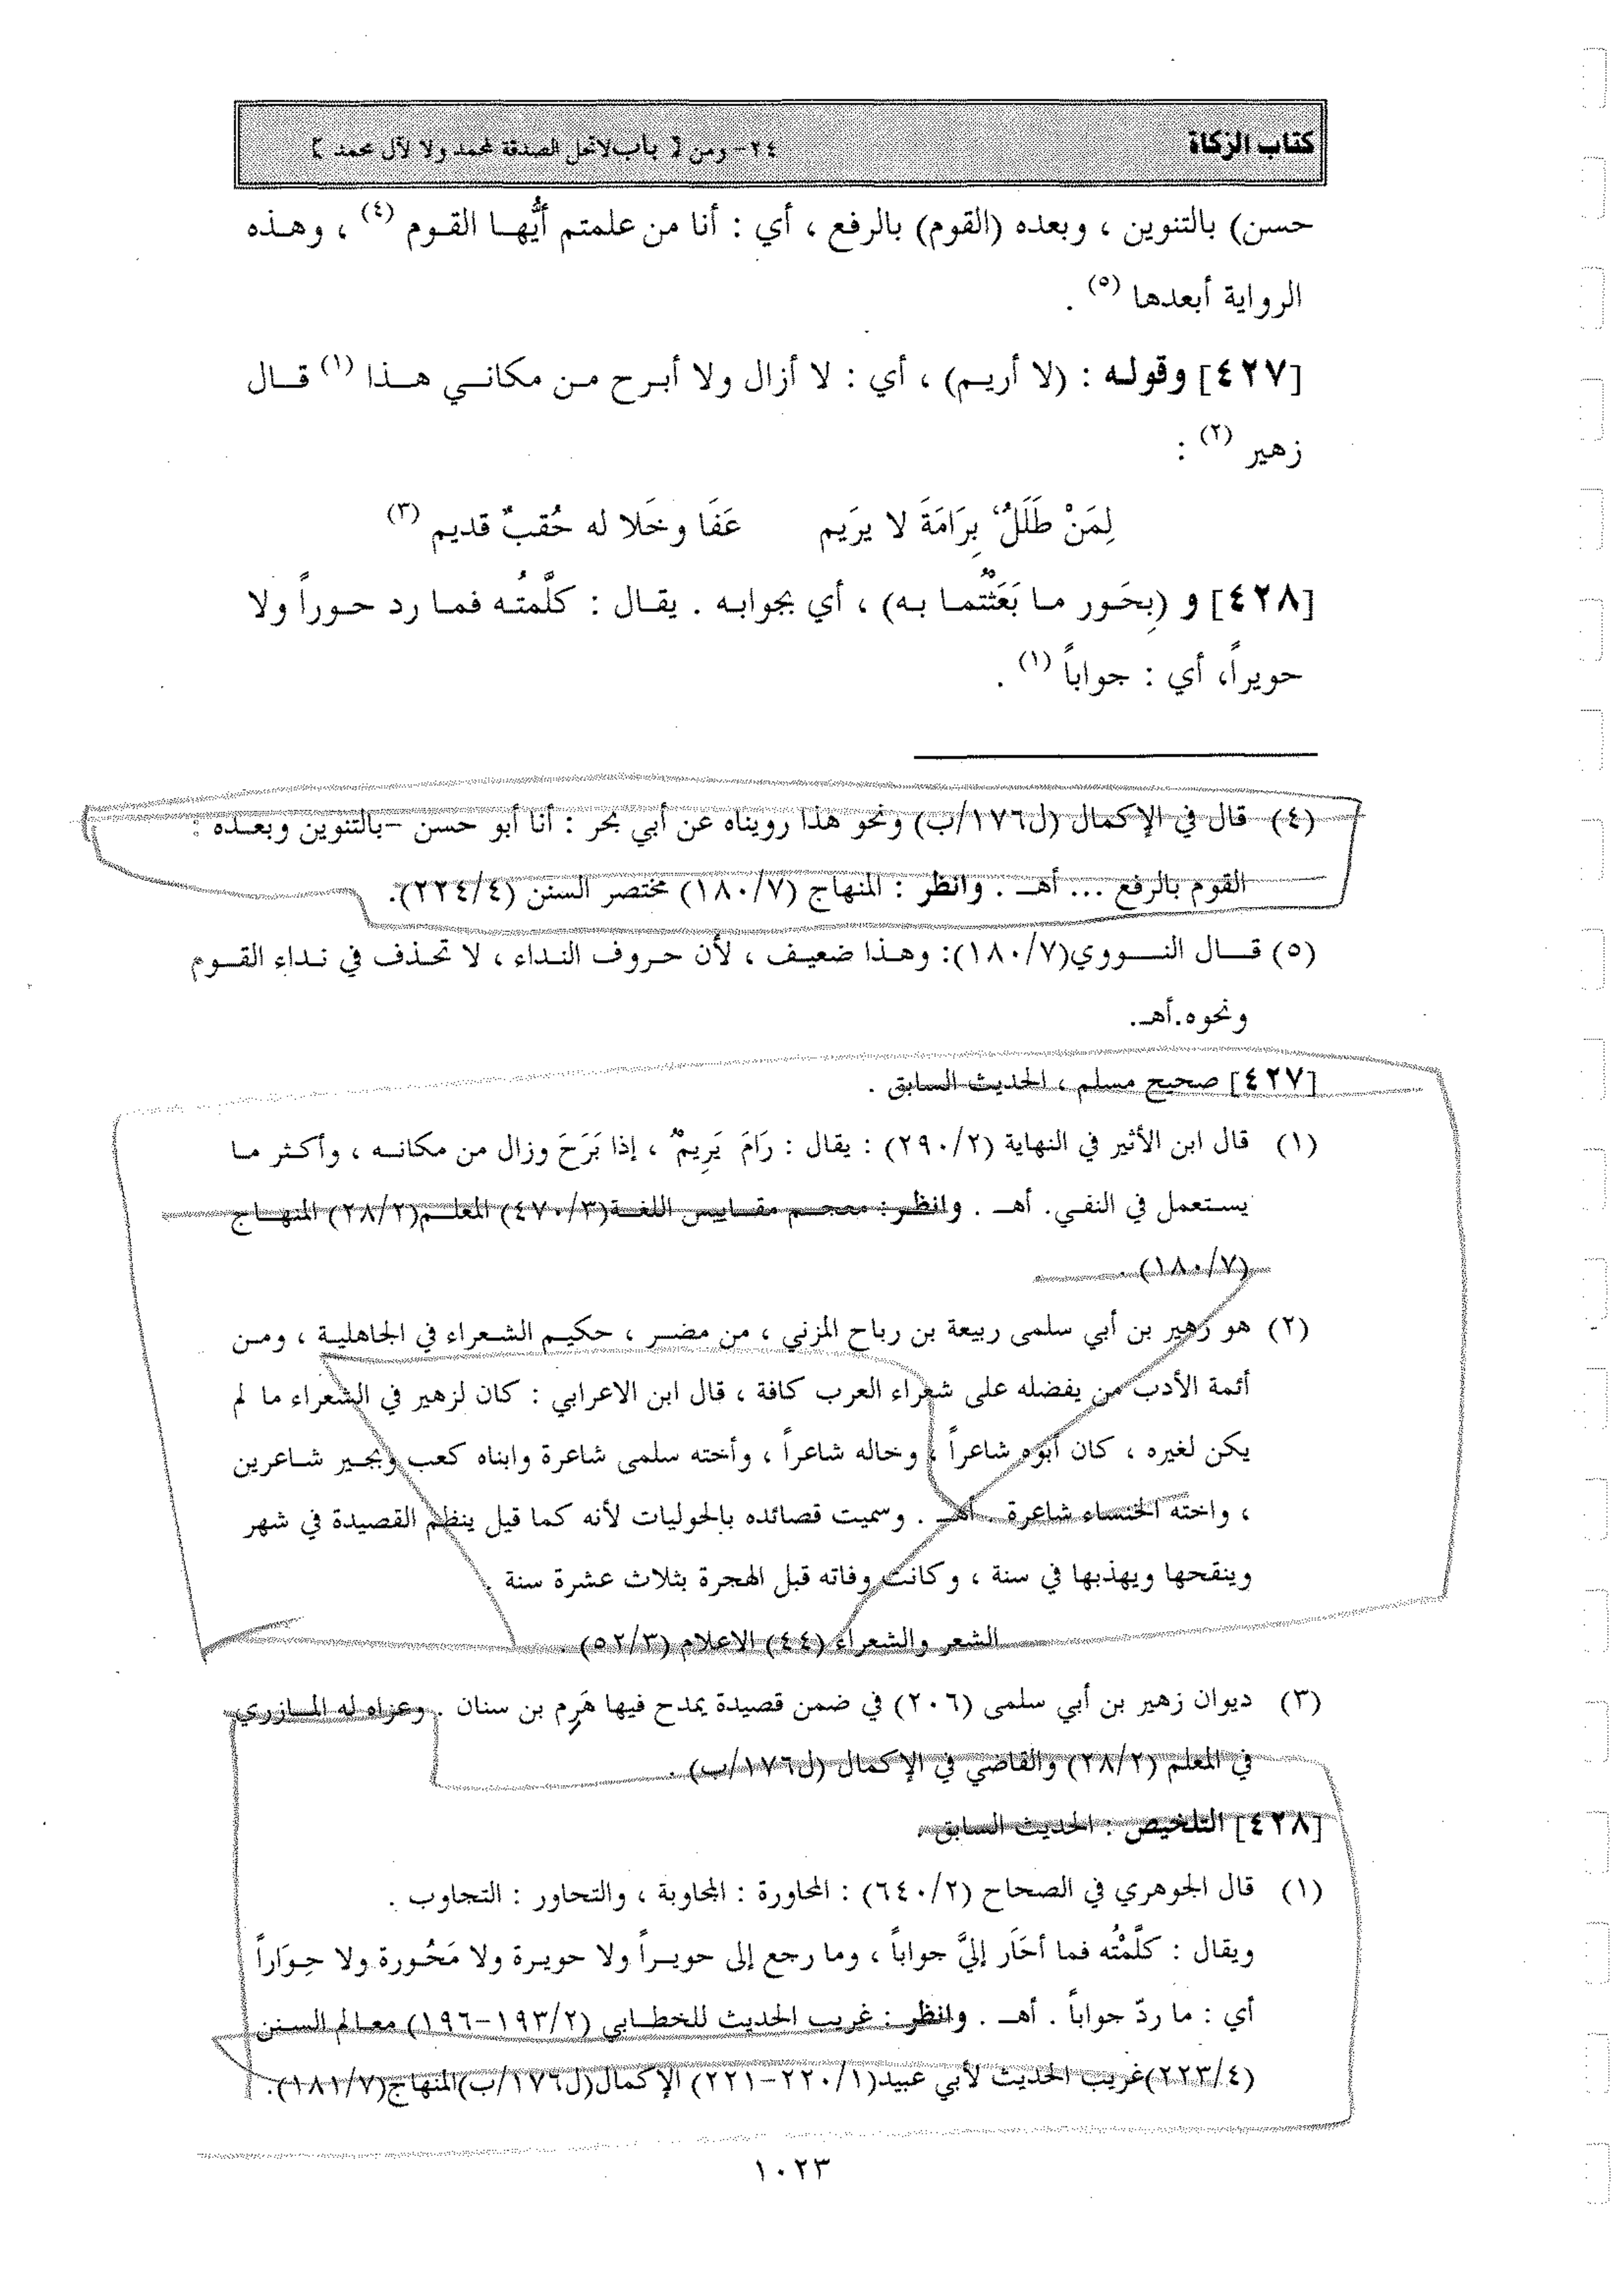 كتاب الزكاة
٢٤- ومن [ باب لا تحل الصدقة لمحمد ولا لآل محمد ]
حسن) بالتنوين ، وبعده (القوم) بالرفع ، أي : أنا من علمتم أيُّها القوم (٤) ، وهذه
الرواية أبعدها (٥) .
[٤٢٧] وقوله : (لا أريم) ، أي : لا أزال ولا أبرح من مكاني هذا (١) قال
زهير (٢) :
لِمَنْ طَلَلٌ بِرَامَةَ لا يرَيم عَفَا وخَلا له حُقبٌ قديم (٣)
[٤٢٨] و (بِحَور ما بَعَثْتُما به) ، أي بجوابه . يقال : كلَّمتُه فما رد حوراً ولا
حويراً، أي : جواباً (١) .
(٤) قال في الإكمال (ل١٧٦/ب) ونحو هذا رويناه عن أبي بحر : أنا أبو حسن -بالتنوين وبعده :
القوم بالرفع ... أهـ . وانظر : المنهاج (١٨٠/٧) مختصر السنن (٢٢٤/٤).
(٥) قال النووي(١٨٠/٧): وهذا ضعيف ، لأن حروف النداء ، لا تحذف في نداء القوم
ونحوه.أهـ.
[٤٢٧] صحيح مسلم ، الحديث السابق .
(١) قال ابن الأثير في النهاية (٢٩٠/٢) : يقال : رَامَ يَرِيمُ ، إذا بَرَحَ وزال من مكانه ، وأكثر ما
يستعمل في النفي. أهـ . وانظر : معجم مقاييس اللغة(٤٧٠/٣) المعلم(٢٨/٢) المنهاج
(١٨٠/٧) .
(٢) هو زهير بن أبي سلمى ربيعة بن رباح المزني ، من مضر ، حكيم الشعراء في الجاهلية ، ومن
أئمة الأدب من يفضله على شعراء العرب كافة ، قال ابن الاعرابي : كان لزهير في الشعراء ما لم
يكن لغيره ، كان أبوه شاعراً ، وخاله شاعراً ، وأخته سلمى شاعرة وابناه كعب وبجير شاعرين
، واخته الخنساء شاعرة . أهـ . وسميت قصائده بالحوليات لأنه كما قيل ينظم القصيدة في شهر
وينقحها ويهذبها في سنة ، وكانت وفاته قبل الهجرة بثلاث عشرة سنة .
الشعر والشعراء (٤٤) الاعلام (٥٢/٣) .
(٣) ديوان زهير بن أبي سلمى (٢٠٦) في ضمن قصيدة يمدح فيها هَرِم بن سنان . وعزاه له المازري
في المعلم (٢٨/٢) والقاضي في الإكمال (ل١٧٦/ب) .
[٤٢٨] التلخيص : الحديث السابق .
(١) قال الجوهري في الصحاح (٦٤٠/٢) : المحاورة : المجاوبة ، والتحاور : التجاوب .
ويقال : كلَّمْتُه فما أحَار إليَّ جواباً ، وما رجع إلى حويراً ولا حويرة ولا مَحُورة ولا حِوَاراً
أي : ما ردّ جواباً . أهـ . وانظر : غريب الحديث للخطابي (١٩٣/٢-١٩٦) معالم السنن
(٢٢٣/٤)غريب الحديث لأبي عبيد(٢٢٠/١-٢٢١) الإكمال(ل١٧٦/ب)المنهاج(١٨١/٧).
١٠٢٣